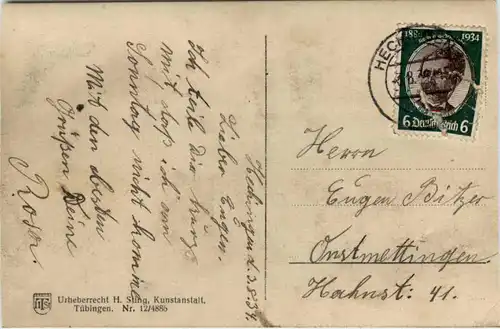 Hechingen d. 3.8.34.
Lieber Eugen.
Ich teile dir kurz
mit daß ich am
Sonntag nicht komme
Mit den besten
Grüßen Deine
Rosa.
Urheberrecht H. Sting, Kunstanstalt,
Tübingen. Nr. 12/4885
HECH
1934
6 Deutsches Reich 6
Herrn
Eugen Bitzer
Onstmettingen
Hahnstr. 41.